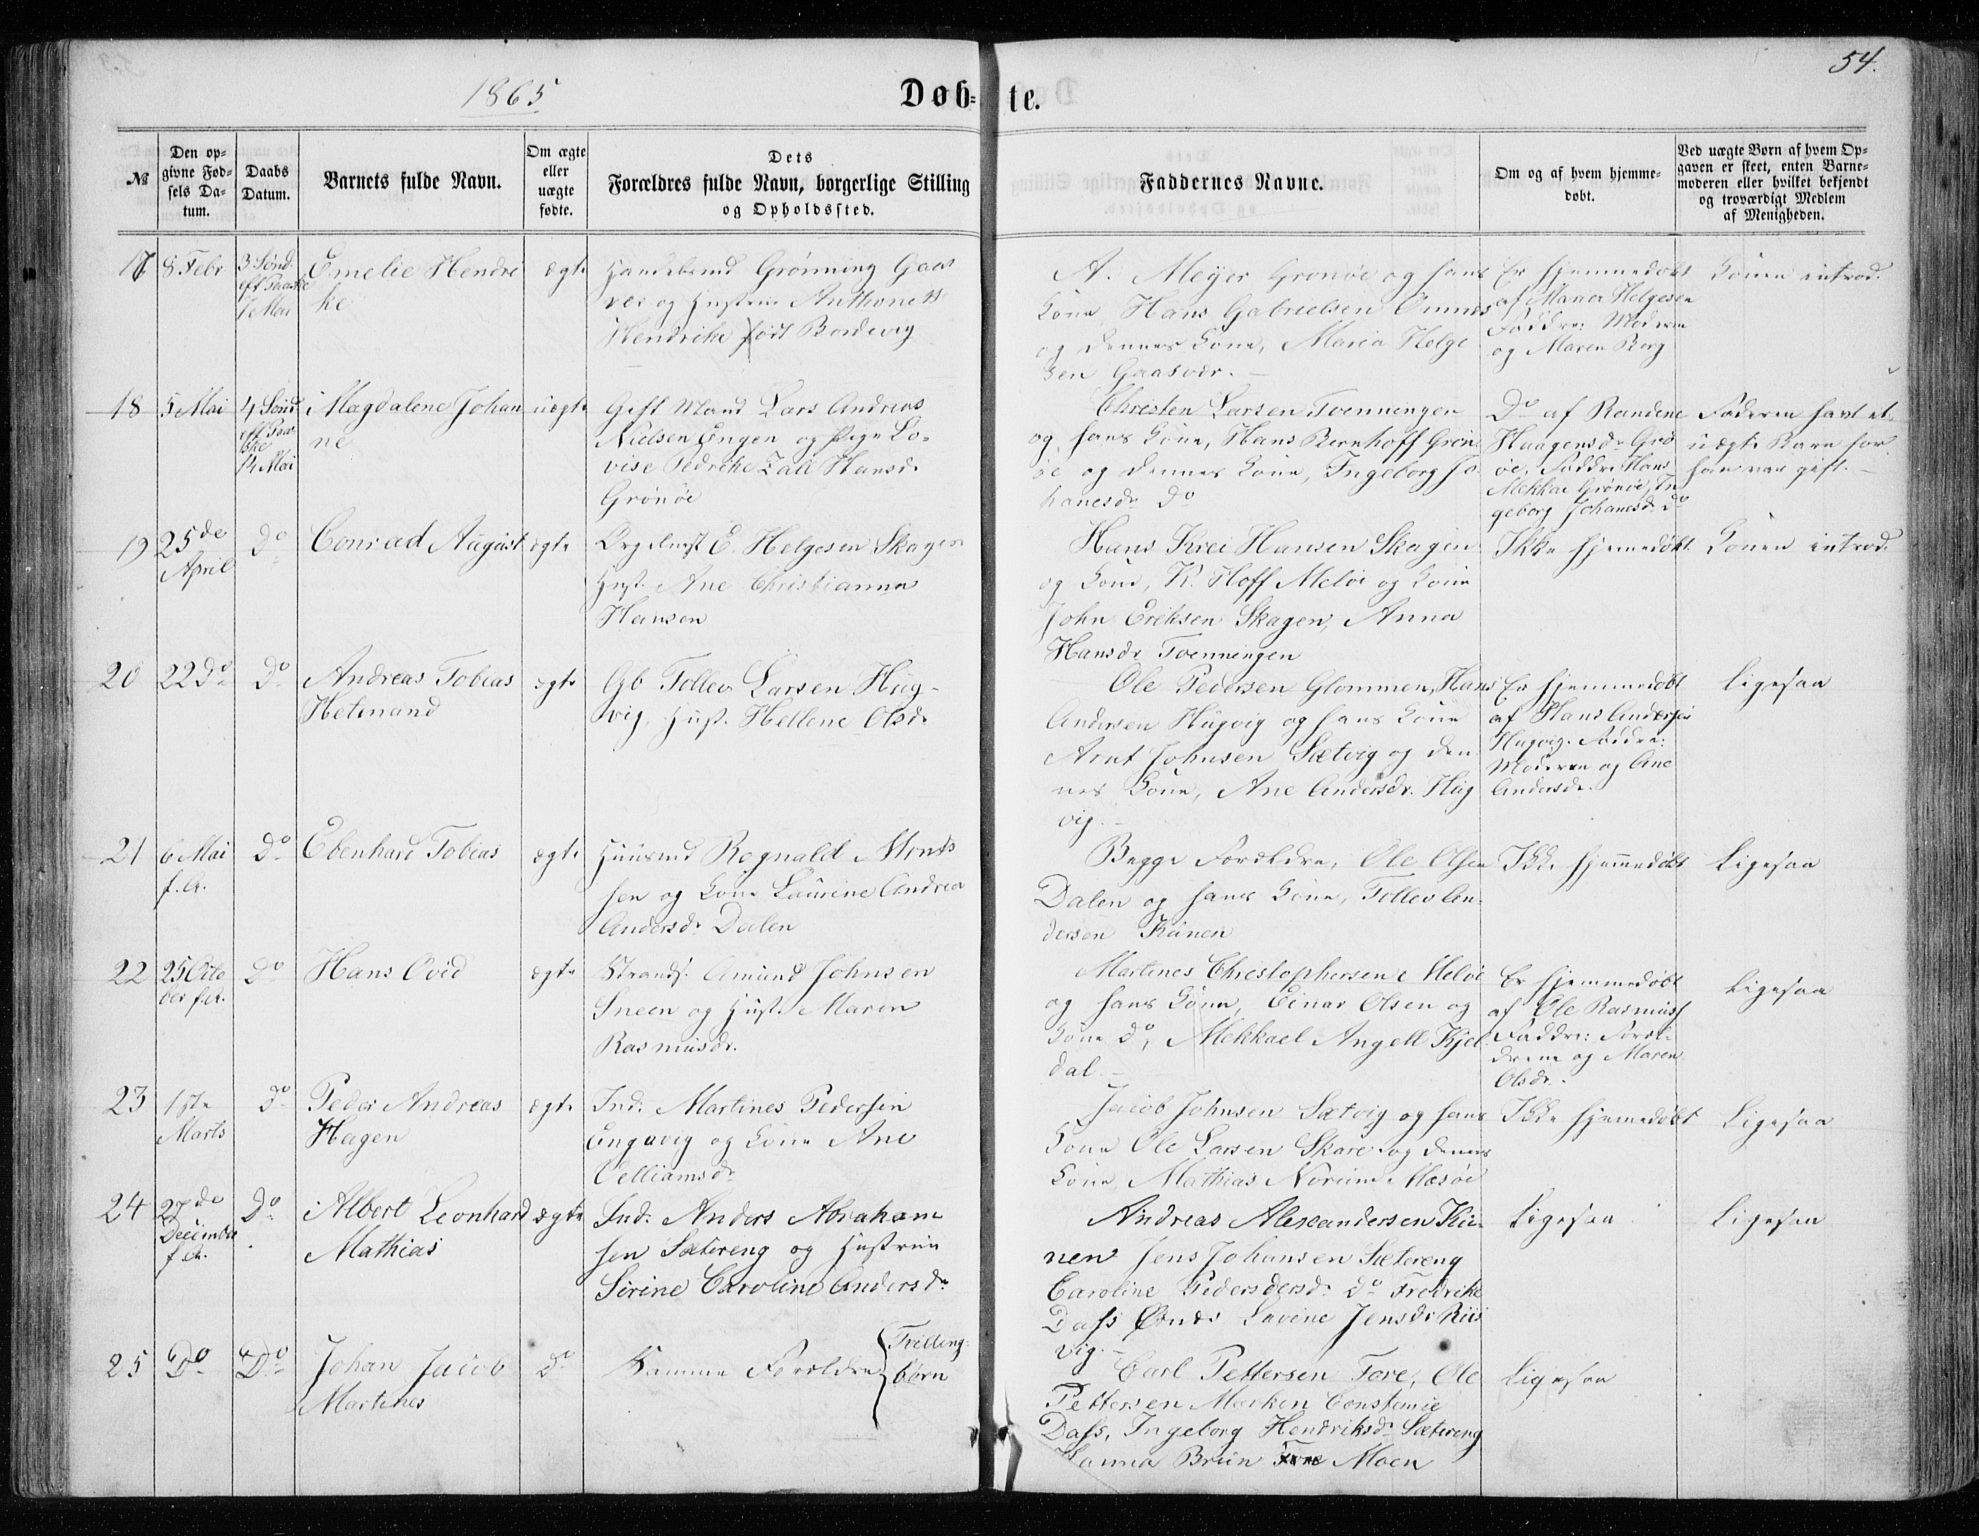 1865
Døb-te.
54.
№
Den op-
givne Fød-
sels Da-
tum.
Daabs
Datum.
Barnets fulde Navn.
Om ægte
eller
uægte
fødte.
Dets
Forældres fulde Navn, borgerlige Stilling
og Opholdssted.
Faddernes Navne.
Om og af hvem hjemme-
døbt.
Ved uægte Børn af hvem Op-
gaven er skeet, enten Barne-
moderen eller hvilket bekjendt
og troværdigt Medlem
af Menigheden.
17
8 Febr
3 Sønd.
eft Paaske
7 Mai
Emelie Hendri
ke
ægte
Handelsmd Grønning Gaas
vær og Hustru Anthonette
Hendrike født Bordevig
A. Meyer Grønøe og hans
Kone, Hans Gabrielsen Ømnes
og dennes Kone, Maria Helge
sen Gaasvær.
Er hjemmedøbt
af Maria Helgesen
Faddre: Moderen
og Maren Berg
Konen introd.
18
5 Mai
4 Sønd
eft Paa-
ske
14 Mai
Magdalene Johan
ne
uægte
Gift Mand Lars Andreas
Nielsen Engen og Pige Lo-
vise Pedrike Zali Hansdr
Grønøe
Christen Larsen Tvenningen
og hans Kone, Hans Bernhoff Grøn
øe og dennes Kone, Ingeborg Jo
hanesdr Do
Do af Randine
Haagensdr Grø
øe, Faddre Hans
Mekkal Grønøe, In
geborg Johanesdr Do
Faderen havt et
uægte Barn før
han var gift.
19
25de
April
Do
Conrad August
ægte
E. Helgesen Skagen
Hust. Ane Christianna
Hansen
Hans Krei Hansen Skagen
og Kone, K. Hoff Meløe og Kone
John Eriksen Skagen, Anna
Hansdr Tvenningen
Ikke hjemedøbt
Konen introd.
20
22 Do
Do
Andreas Tobias
Hetmand
ægte
Gb Tollev Larsen Hug-
vig, Hust. Hellene Olsdr
Ole Pedersen Glommen, Hans
Andersen Hugvig og hans Kone
Arnt Johnsen Sætvig og den
nes Kone, Ane Andersdr. Hug
vig.
Er hjemmedøbt
af Hans Andersen
Hugvig. Faddre:
Moderen og Ane
Andersdr.
Ligesaa
21
6 Mai
f. A.
Do
Ebenhard Tobias
ægte
Huusmd Regnald Monts
sen og Kone Laurine Andrea
Andersdr Dalen
Begge Forældre, Ole Olsen
Dalen og hans Kone, Tollev An-
dersen Kunen
Ikke hjemmedøbt
Ligesaa
22
25 Octo
ber f.A.
Do
Hans Ovid
ægte
Strands. Amund Johnsen
Sneen og Hust. Maren
Rasmusdr.
Martines Christophersen Meløe
og hans Kone, Einar Olsen og
Kone Do, Mekkael Angell Kjel
dal.
Er hjemmedøbt
af Ole Rasmuss
Faddre: Foræl-
drene og Maren
Olsdr.
Ligesaa
23
1ste
Marts
Do
Peder Andreas
Hagen
ægte
Ind. Martines Pedersen
Engavig og Kone Ane
Velliamsdr
Jacob Johnsen Sætvig og hans
Kone Ole Larsen Skare og dennes
Kone, Mathias Norum Mesøe
Ikke hjemedøbt
Ligesaa
24
27de
December
f.A.
Do
Albert Leonhard
Mathias
ægte
Ind. Anders Abraham
sen Sætereng og Hustrue
Sirine Caroline Andersdr
Andreas Alexandersen Ku-
nen Jens Johansen Sætereng
Caroline Pedersdersdr Do Fredrike
Dass Ørnes Lovine Jensdr Riis
vig.
Ligesaa
Ligesaa
25
Do
Do
Johan Jacob
Martines
Do
Samme Forældre
Trilling-
børn
Carl Pettersen Fore, Ole
Pettersen Marken Constanse
Dass, Ingeborg Hendriksdr Sætereng
Hanna Bruun Fore Moen
Ligesaa